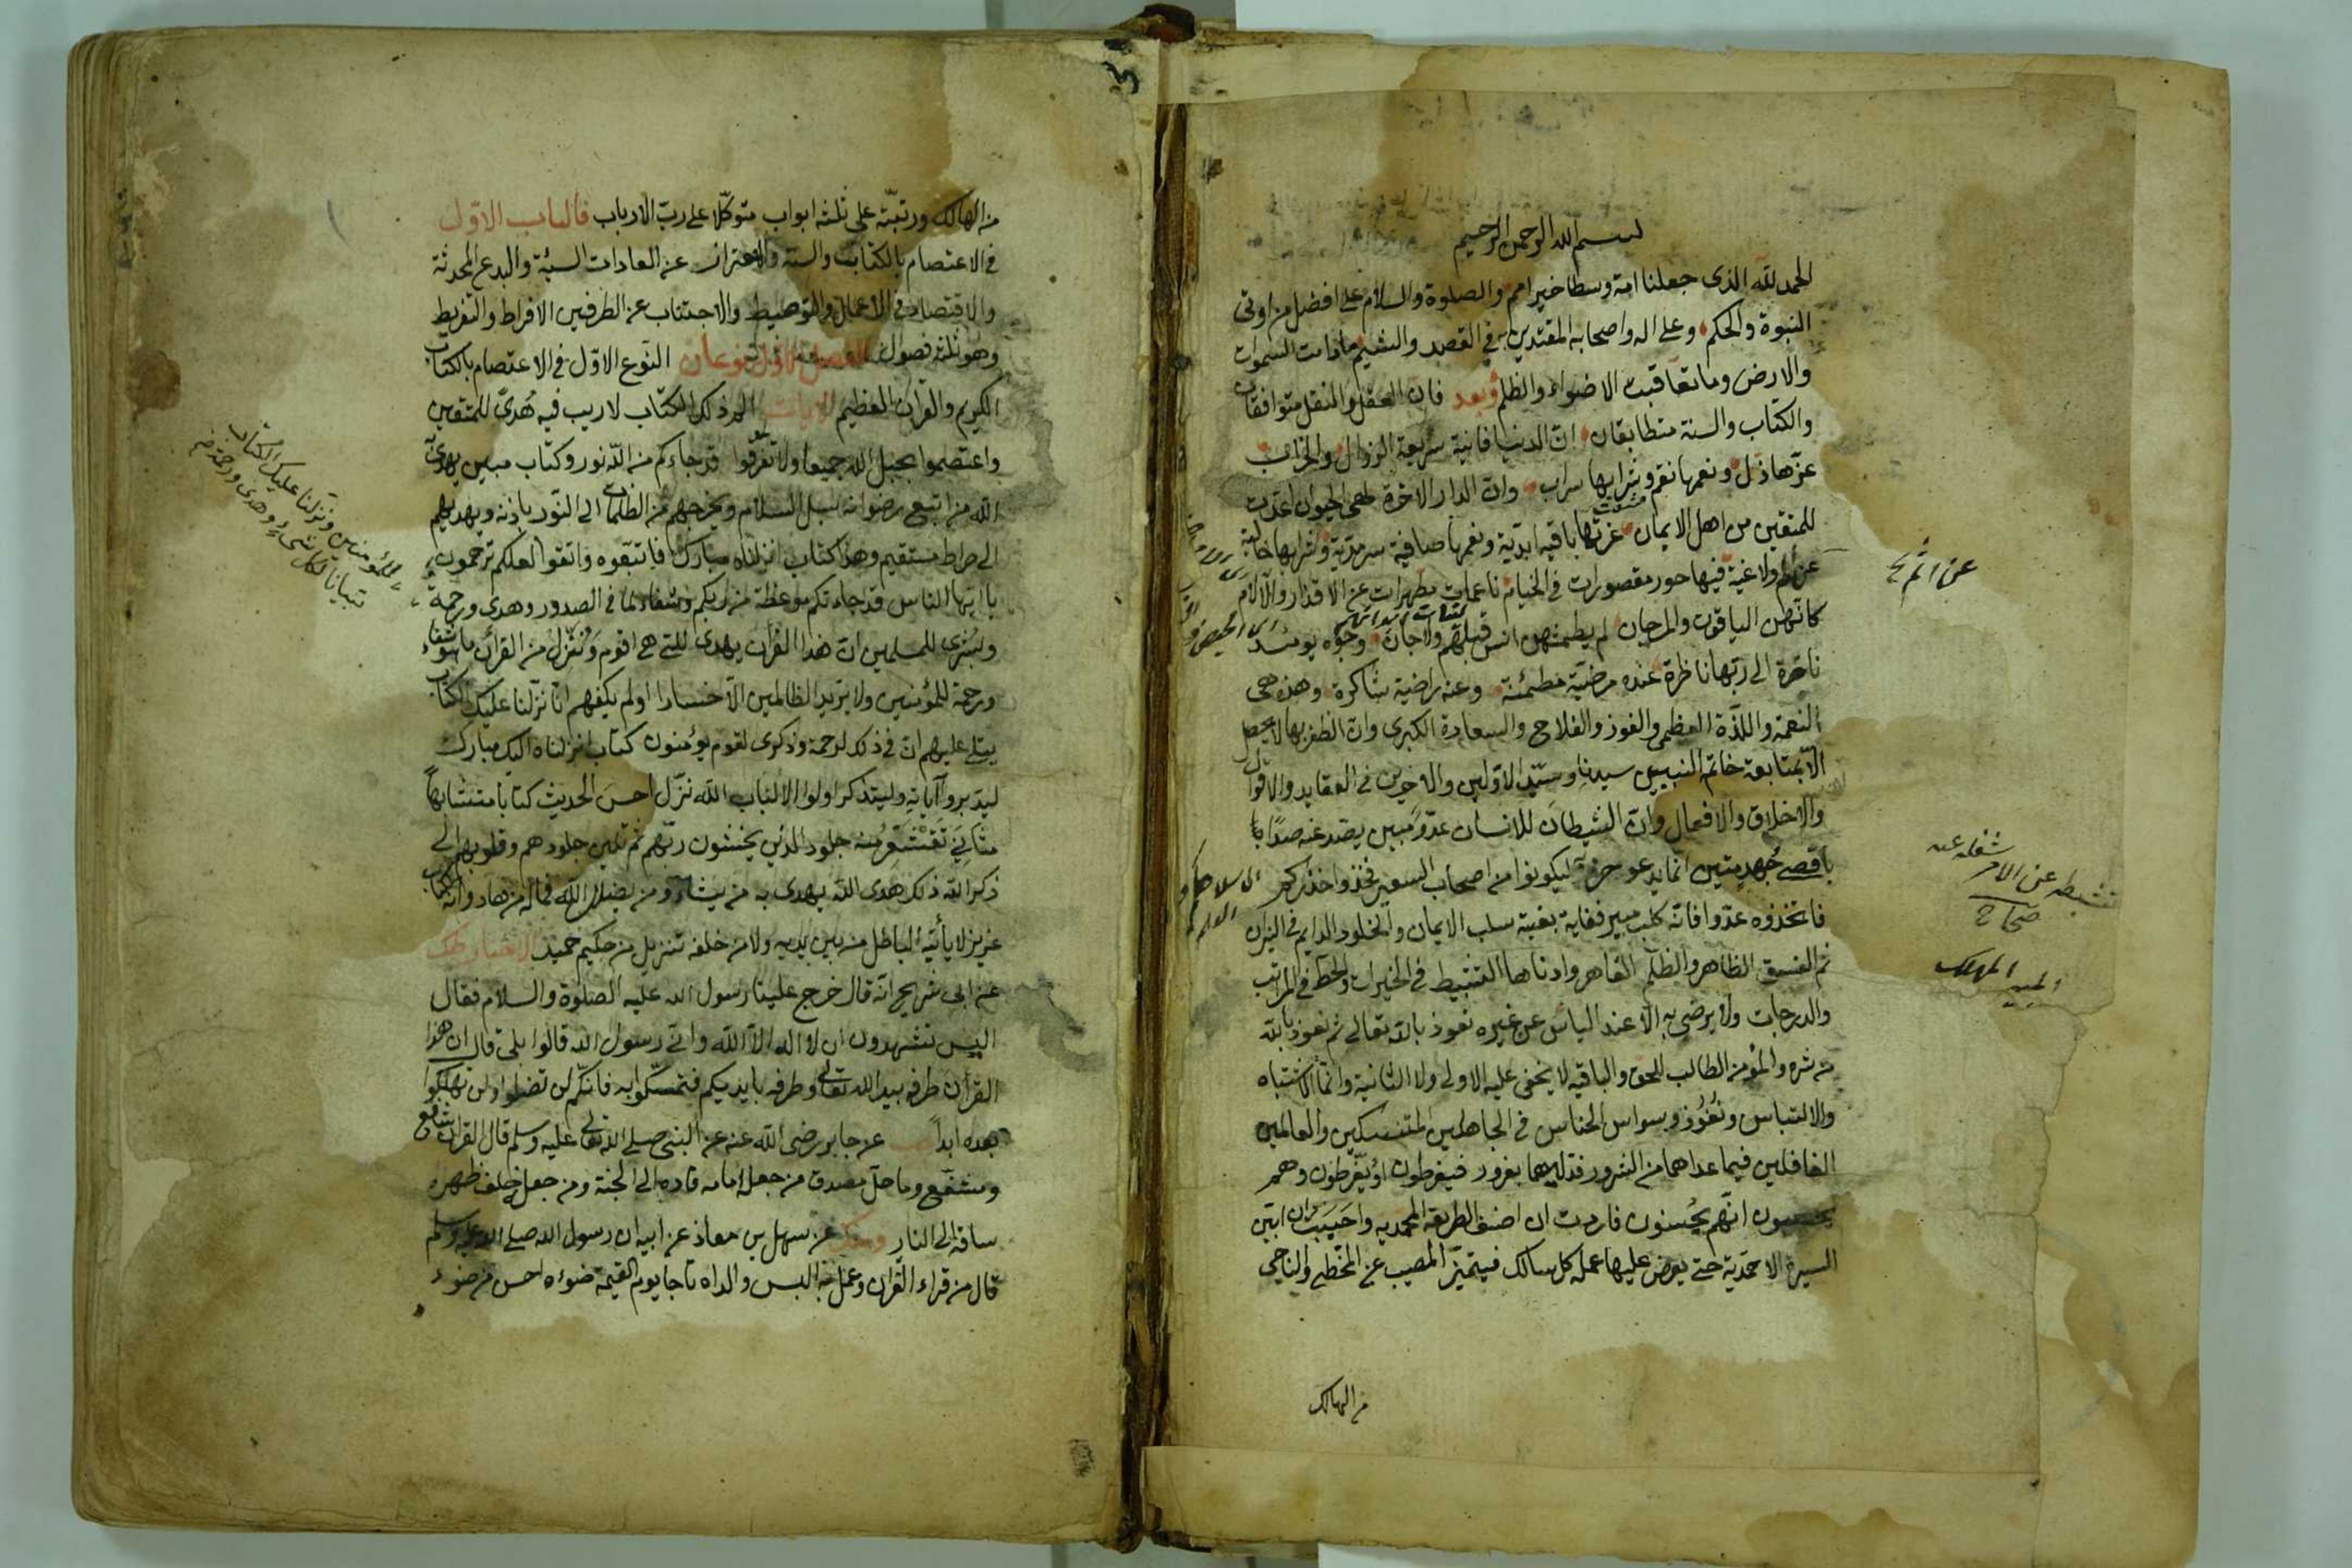 بسم الله الرحمن الرحيم
الحمد لله الذى جعلنا امة وسطا خير امم والصلوة والسلام على افضل من اوتى
النبوة والحكم وعلى اله واصحابه المقتدين به فى القصد والشيم مادامت السموات
والارض وما تعاقبت الاضواء والظلم وبعد فان العقل والنقل متوافقان
والكتاب والسنة متطابقان ان الدنيا فانية سريعة الزوال والخراب
عزها ذل ونعمها نقم وشرابها سراب وان الدار الاخرة لهى الحيوان اعدت
للمتقين من اهل الايمان عزتها باقية ابدية ونعمها صافية سرمدية وشرابها خالية
عن اثم ولاغية فيها حور مقصورات فى الخيام ناعمات مطهرات عن الاقذار والآلام
كانهن الياقوت والمرجان لم يطمثهن انس قبلهم ولا جان وجوه يومئذ
ناضرة الى ربها ناظرة عنده مرضية مطمئنة وعنه راضية شاكرة وهذه هى
النعمة واللذة العظمى والفوز والفلاح والسعادة الكبرى وان الظفر بها لا يحصل
الا بمتابعة خاتم النبيين سيدنا وسيد الاولين والاخرين فى العقايد والاقوال
والاخلاق والافعال وان الشيطان للانسان عدو مبين يصد عنه صدا
باقصى جهد متين انما يدعو حزبه ليكونوا من اصحاب السعير فخذوا حذركم
فاتخذوه عدوا فانه كلب مبير فغاية بغيته سلب الايمان والخلود الدايم فى النيران
ثم الفسق الظاهر والظلم القاهر وادناها التثبيط فى الخيرات والحط فى المراتب
والدرجات ولا يرضى به الا عند الياس عن غيره نعوذ بالله تعالى ثم نعوذ بالله
من شره والمؤمن الطالب للحق والباقية لا يخفى عليه الاولى ولا الثانية وانما الاشتباه
والالتباس ونفوذ وسواس الخناس فى الجاهلين المتنسكين والعالمين
الغافلين فيما عداهما من الشرور فدليهما بغرور فيفرطون او يفرطون وهم
يحسبون انهم يحسنون فاردت ان اصنف الطريقة المحمدية واحببت ان ابين
السيرة الاحمدية حتى يعرض عليها عمله كل سالك فيتميز المصيب عن المخطى والناجى
من الهالك
عن اثم
تثبيطه عن الامر شغله عنه
صحاح
المبير المهلك
من الهالك ورتبته على ثلثة ابواب متوكلا على رب الارباب فالباب الاول
فى الاعتصام بالكتاب والسنة والاحتراز عن العادات السيئة والبدع المحدثة
والاقتصاد فى الاعمال والتوسيط والاجتناب عن الطرفين الافراط والتفريط
وهو ثلثة فصول الفصل الاول نوعان النوع الاول فى الاعتصام بالكتاب
الكريم والقران العظيم الايات الم ذلك الكتاب لا ريب فيه هدى للمتقين
واعتصموا بحبل الله جميعا ولا تفرقوا قد جاءكم من الله نور وكتاب مبين يهدى
الله من اتبع رضوانه سبل السلام ويخرجهم من الظلمات الى النور باذنه ويهديهم
الى صراط مستقيم وهذا كتاب انزلناه مبارك فاتبعوه واتقوا لعلكم ترحمون
يا ايها الناس قد جاءتكم موعظة من ربكم وشفاء لما فى الصدور وهدى ورحمة
وبشرى للمسلمين ان هذا القران يهدى للتى هى اقوم وننزل من القرآن ما هو شفاء
ورحمة للمؤمنين ولا يزيد الظالمين الا خسارا اولم يكفهم انا نزلنا عليك الكتاب
يتلى عليهم ان فى ذلك لرحمة وذكرى لقوم يؤمنون كتاب انزلناه اليك مبارك
ليدبروا آياته وليتذكر اولوا الالباب الله نزل احسن الحديث كتابا متشابها
مثانى تقشعر منه جلود الذين يخشون ربهم ثم تلين جلودهم وقلوبهم الى
ذكر الله ذلك هدى الله يهدى به من يشاء ومن يضلل الله فما له من هاد وانه لكتاب
عزيز لا يأتيه الباطل من بين يديه ولا من خلفه تنزيل من حكيم حميد الاخبار
عن ابى شريح انه قال خرج علينا رسول الله عليه الصلوة والسلام فقال
اليس تشهدون ان لا اله الا الله وانى رسول الله قالوا بلى قال ان هذا
القرآن طرفه بيد الله تعالى وطرفه بايديكم فتمسكوا به فانكم لن تضلوا ولن تهلكوا
بعده ابدا عن جابر رضى الله عنه عن النبى صلى الله تعالى عليه وسلم قال القران شافع
ومشفع وماحل مصدق من جعله امامه قاده الى الجنة ومن جعله خلف ظهره
ساقه الى النار عن سهل بن معاذ عن ابيه ان رسول الله صلى الله عليه وسلم
قال من قراء القرآن وعمل به البس والداه تاجا يوم القيمة ضوءه احسن من ضوء
للمؤمنين ونزلنا عليك الكتاب
تبيانا لكل شىء وهدى ورحمة